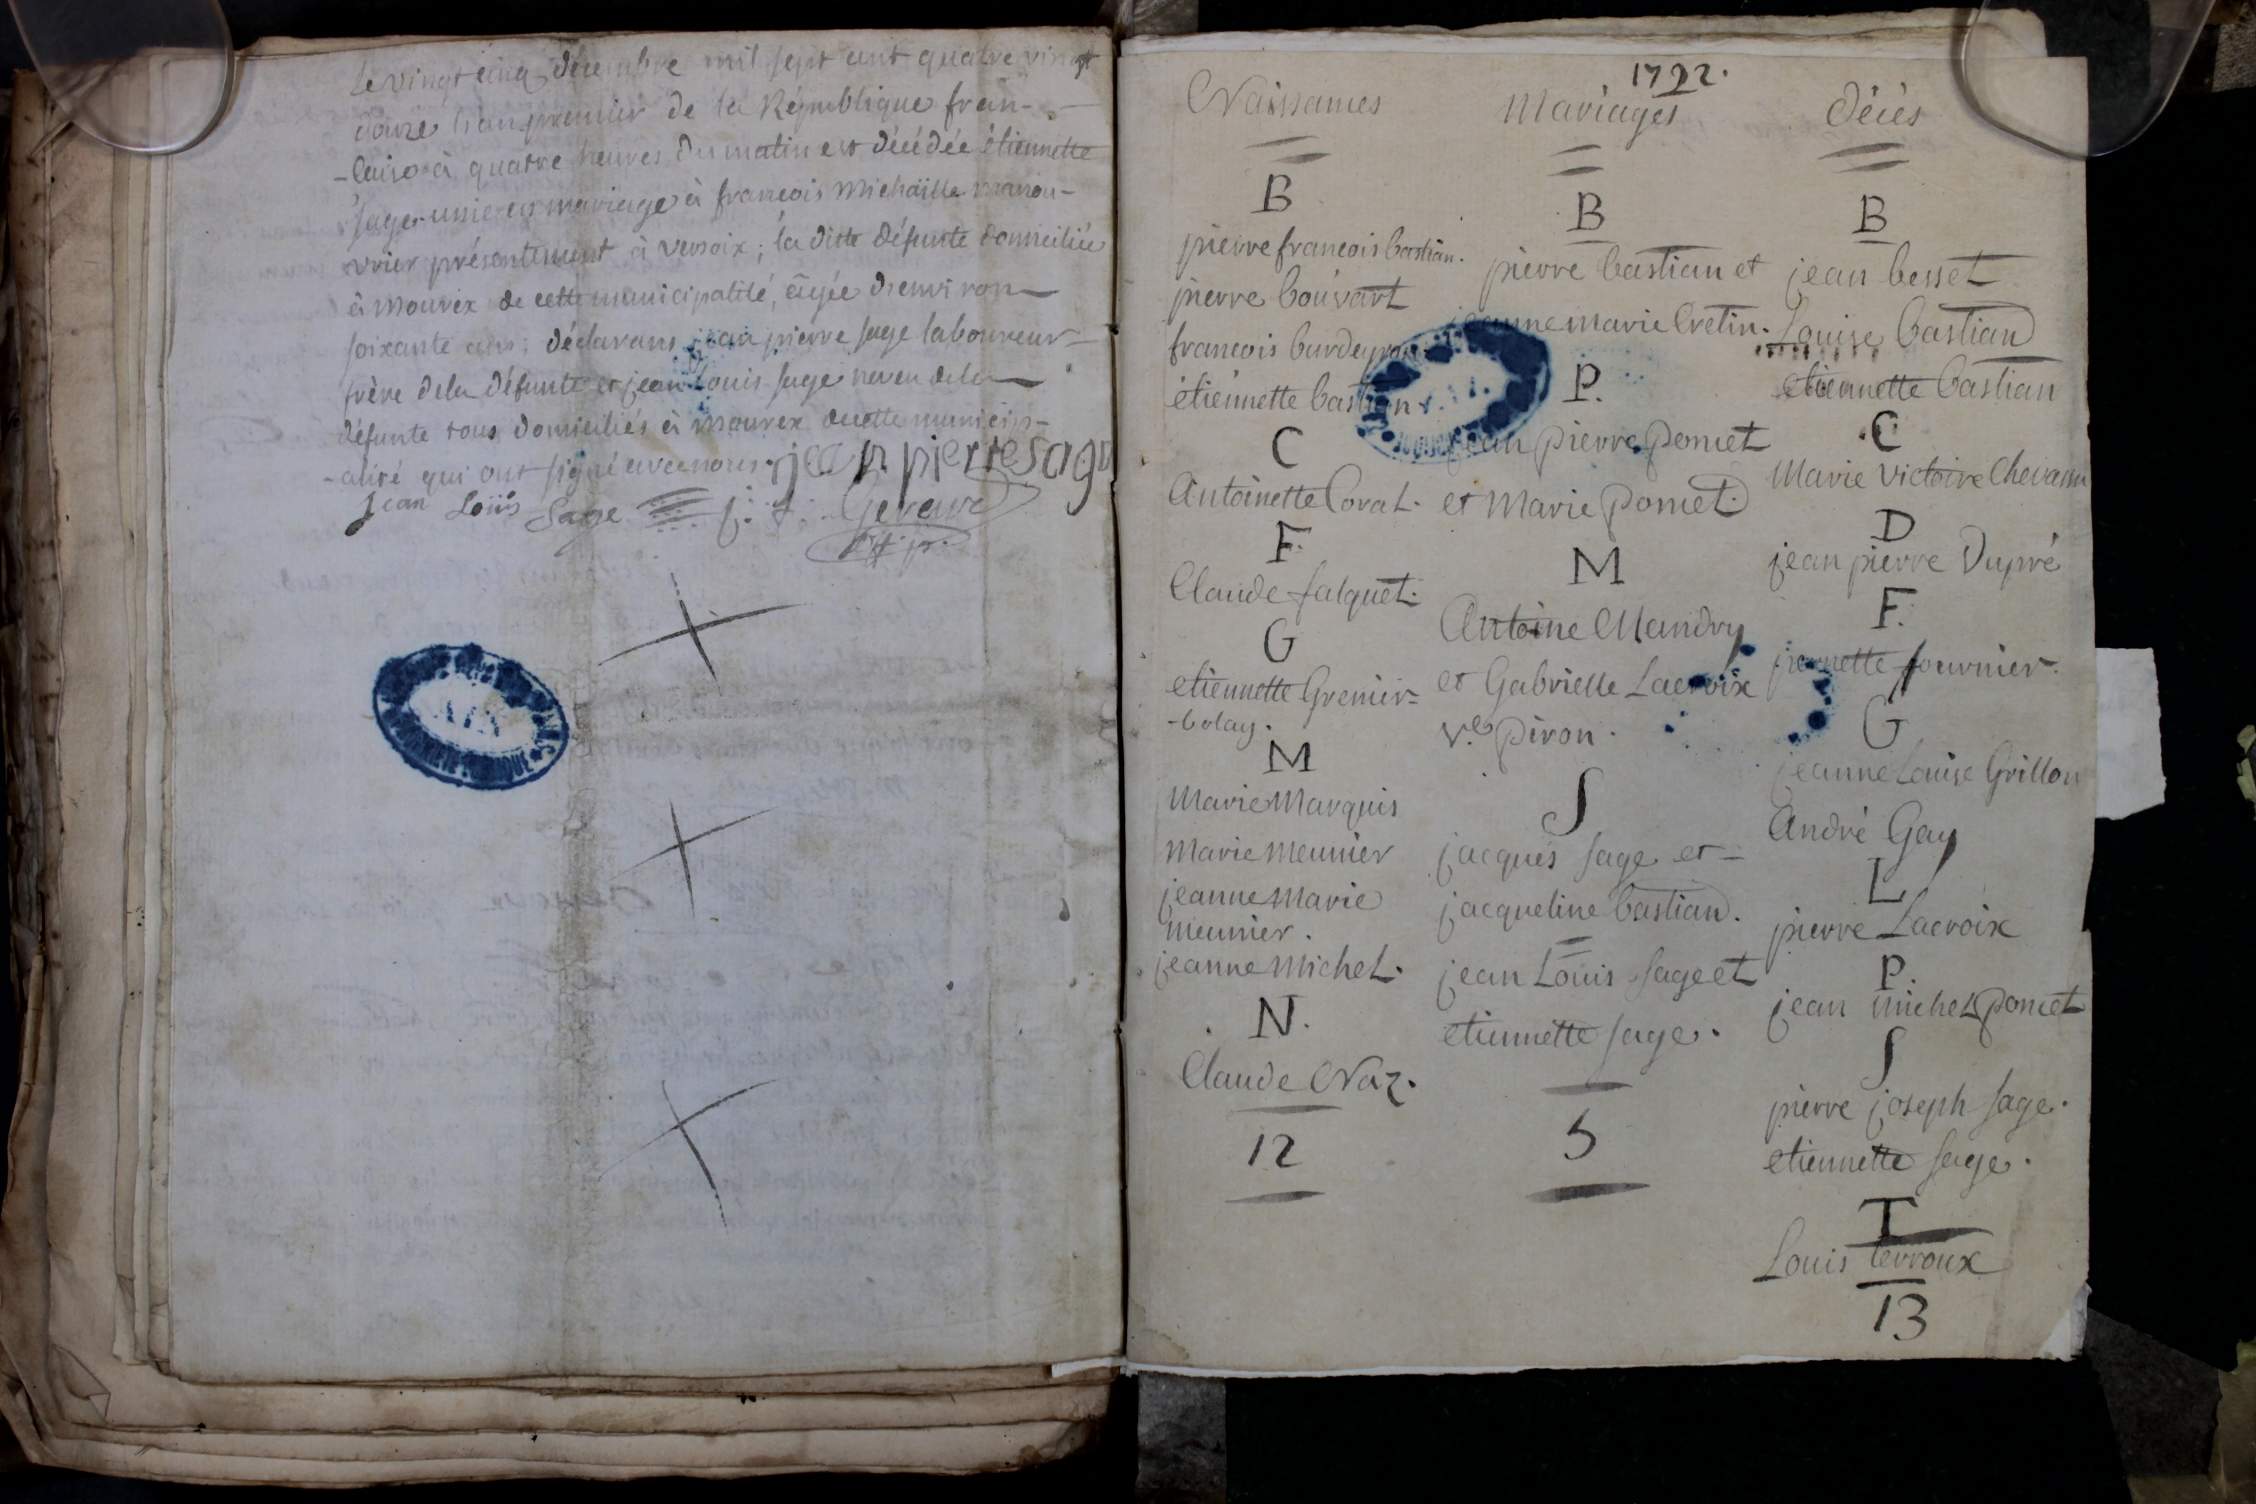 Le vingt cinq décembre mil sept cent quatre vingt
douze l'an premier de la République fran-
-caise à quatre heures du matin est décédée étiennette
sage unie en mariage à francois Michaille manou-
vrier présentement à versoix; la ditte défunte domiciliée
à mourex de cette municipalité, âgée d'environ
soixante ans; déclarans jean pierre sage laboureur
frère de la défunte et jean Louis sage neveu de la
défunte tous domiciliés à mourex de cette municip-
-alité qui ont signé avec nous. jean pierre sage
Jean Loüis Sage
1792.
Naissances
B
pierre francois bastian.
pierre bouvart
francois burdeyron
étiennette bastian
C
Antoinette Corat.
F
Claude falquet.
G
etiennette Grenier-
-bolay.
M
Marie Marquis
Marie Meunier
jeanne Marie
Meunier.
jeanne Michel.
N.
Claude Naz.
12
Mariages
B
pierre bastian et
jeanne Marie Cretin.
P.
jean pierre Poncet
et Marie Poncet.
M
Antoine Mandry
et Gabrielle Lacroix
ve. Piron.
S
jacques sage et-
jacqueline bastian.
jean Louis sage et
etiennette sage.
5
décès
B
jean besset
Louise bastian
etiennette bastian
C
Marie victoire
D
jean pierre Dupré
F.
pernette fournier.
G
jeanne Louise Grillon
André Gay
L
pierre Lacroix
P.
jean michel Poncet
S
pierre joseph sage.
etiennette sage.
T
Louis terroux
13